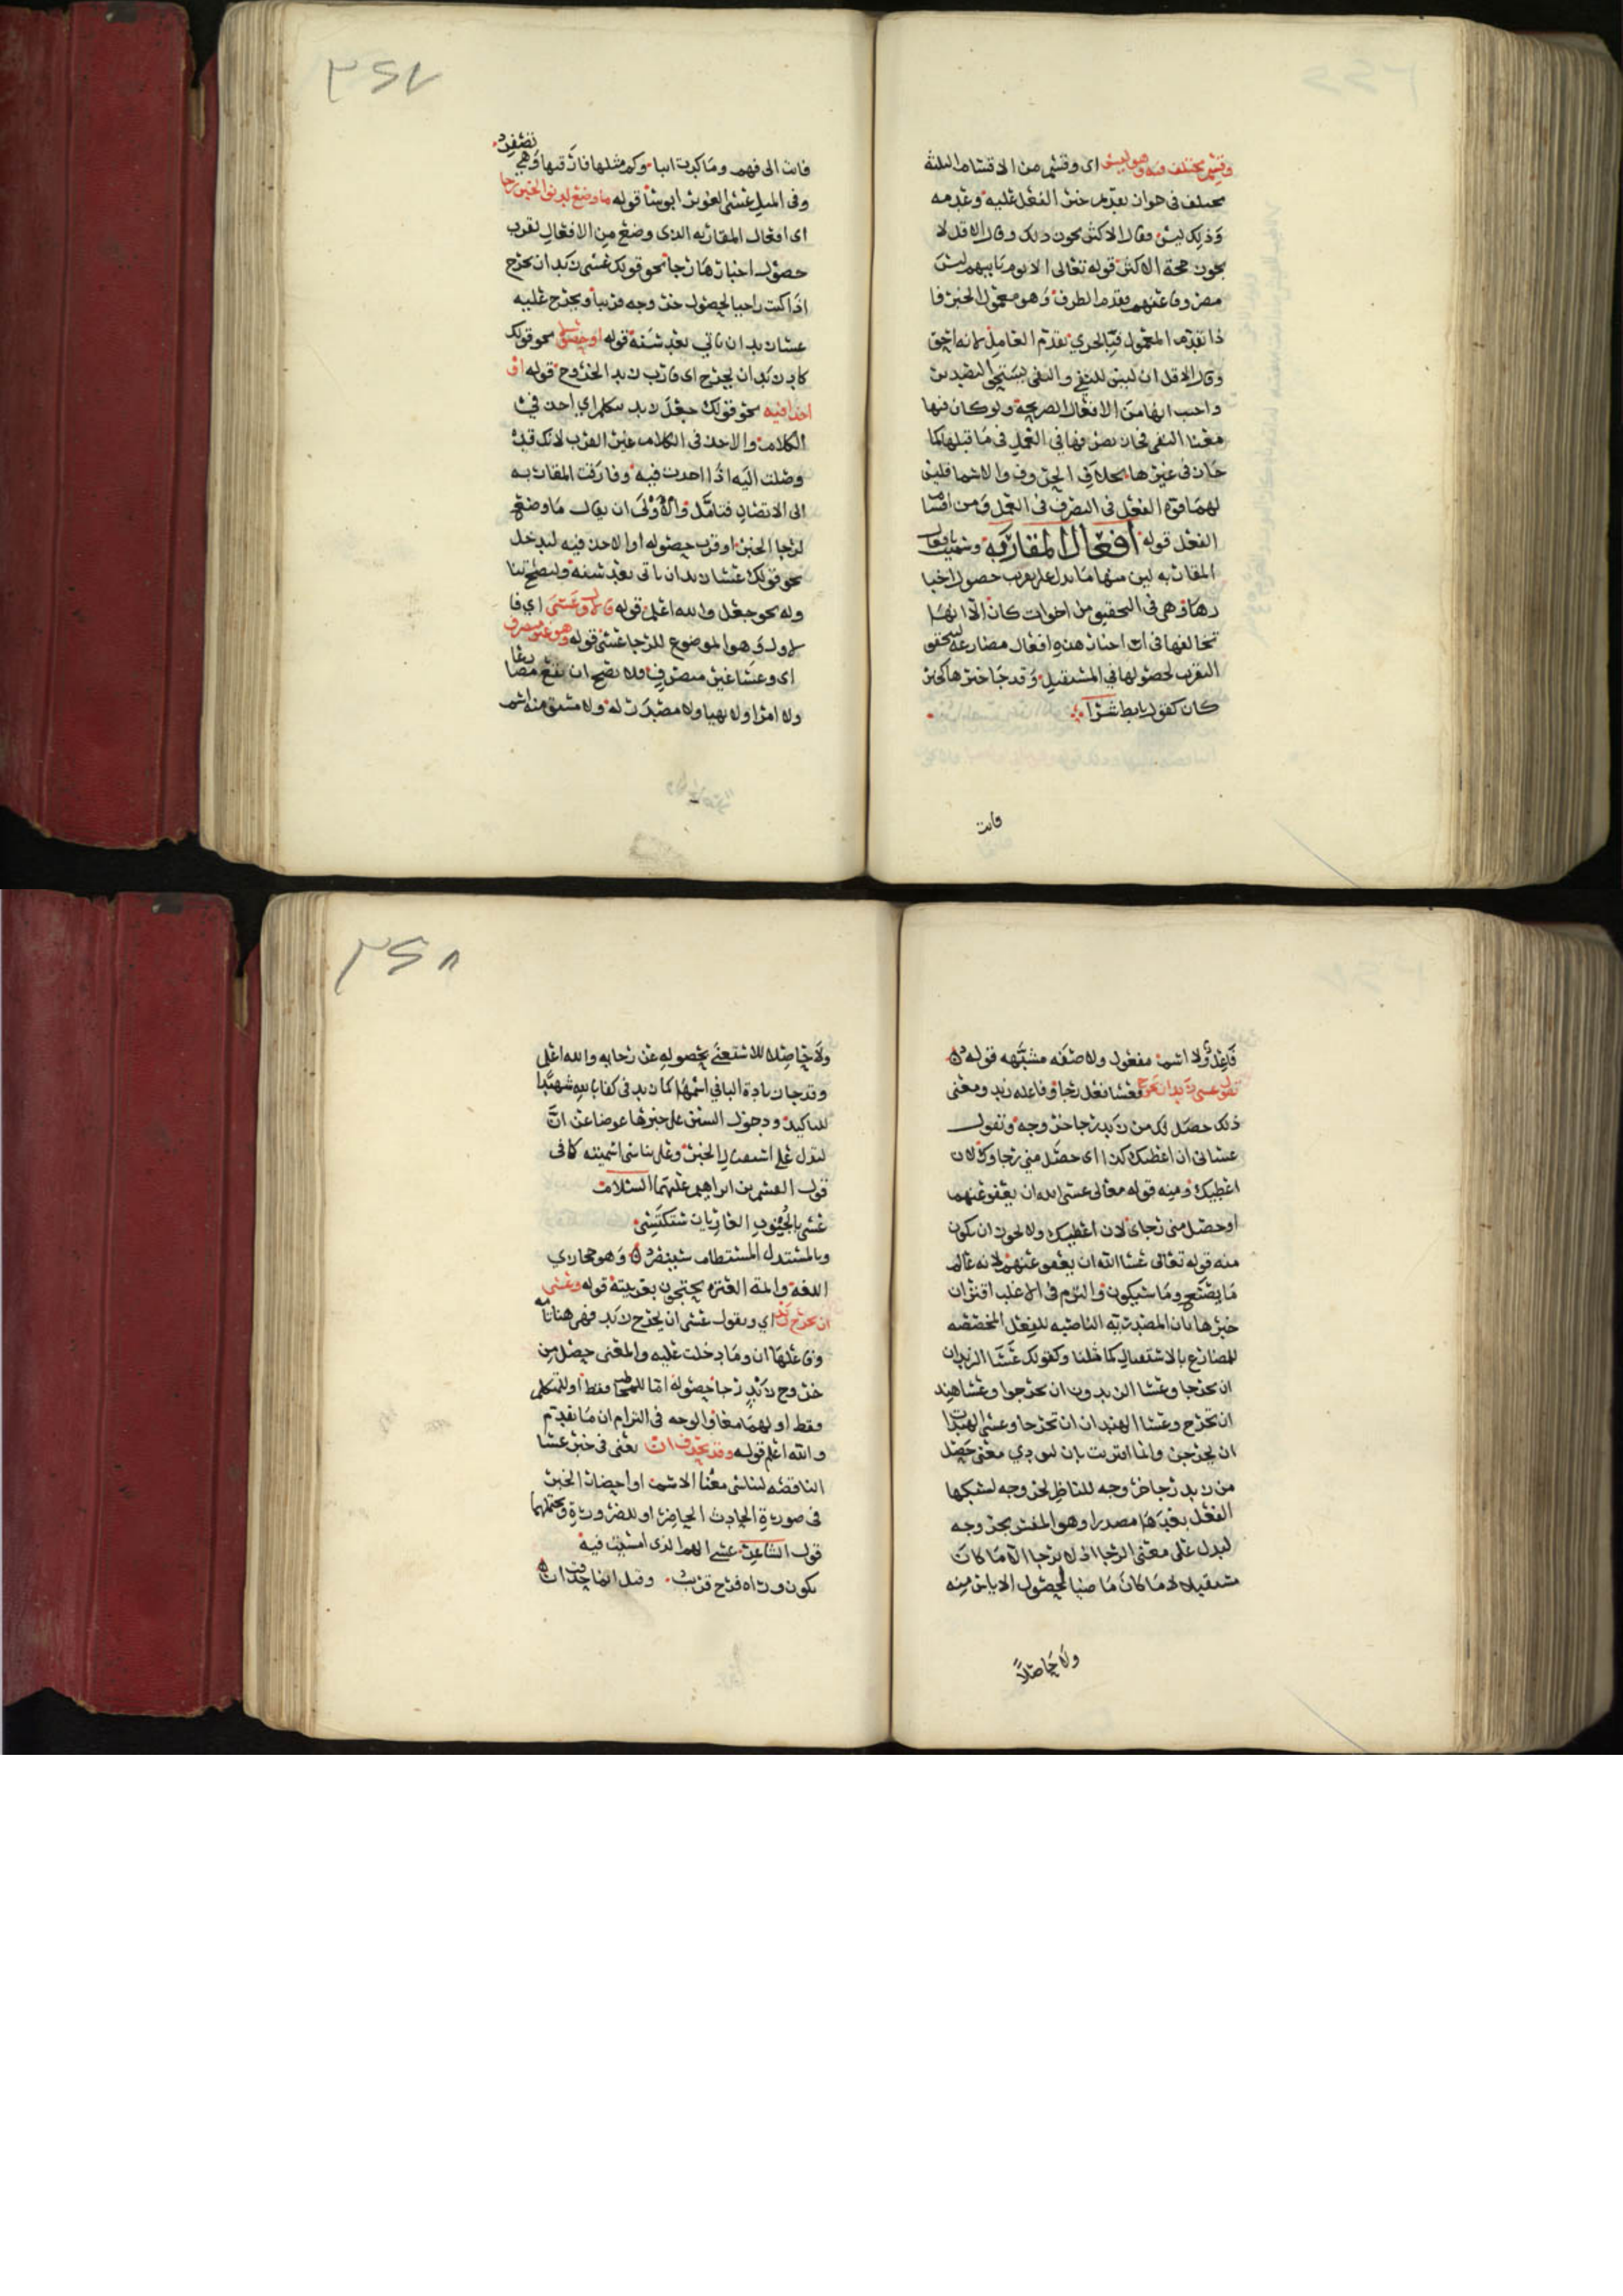 وقسم مختلف فيه وهو ليس اي وقسم من الاقسام الثلثة
مختلف في جواز تقديم خبر الفعل عليه وعدمه
وذلك ليس فقال الاكثر يجوز ذلك وقال الاقل لا
يجوز حجة الاكثر قوله تعالى الا يوم ياتيهم ليس
مصروفا عنهم فقدم الظرف وهو معمول الخبر فا
ذا تقدم المعمول فبالحري تقدم العامل لانه احق
وقال الاقل ان ليس للنفي والنفي يستحق التصدير
واجيب انها من الافعال الصريحة ولو كان فيها
معنا النفي فجاز تصرفها في العمل في ما قبلها كما
جاز في غيرها بخلاف الحروف والاسما فليس
لهما قوة الفعل في التصرف في العمل ومن اقسام
الفعل قوله أفعال المقاربة وسميت افعال
المقاربه لان منها ما يدل على تقرب حصول اخبا
رها وهي في التحقيق من اخوات كان الا انها
تخالفها في ان اخبار هذه افعال مضارعة لتحقق
التقرب لحصولها في المستقبل وقد جا خبرها كخبر
كان كقول تابط شرا
فابت
٣٤٧
فابت الى فهم وما كدت ايبا وكم مثلها فارقتها وهي تصفر
وفي المثل عسى الغوير ابوسا قوله ما وضع لدنو الخبر رجا
اي افعال المقاربه الذي وضع من الافعال لقرب
حصول اخبارها رجا نحو قولك عسى زيد ان يخرج
اذا كنت راجيا لحصول خروجه قريبا ويخرج عليه
عسا زيد ان ياتي بعد سنة قوله او حصولا نحو قولك
كاد زيد ان يخرج اي قارب زيد الخروج قوله او
اخذا فيه نحو قولك جعل زيد يتكلم اي اخذ في
الكلام والاخذ في الكلام غير القرب لانك قد
وصلت اليه اذا اخذت فيه وفارقت المقاربه
الى الاتصال فتامل والأولى ان يقال ما وضع
لرجا الخبر او قرب حصوله او الاخذ فيه ليدخل
نحو قولك عسا زيد ان ياتي بعد سنه
وله نحو جعل والله اعلم قوله فالاول عسى اي فا
لاول وهو الموضوع للرجا عسى قوله وهو غير متصرف
اي وعسا غير متصرف فلا يصح ان يقع مضارعا
ولا امرا ولا نهيا ولا مصدر له ولا مشتق منه اسم
فاعل ولا اسم مفعول ولا صفه مشبهه قوله
تقول عسى زيد ان يخرج فعسا فعل رجا وفاعله زيد ومعنى
ذلك حصل لك من زيد رجا خروجه وتقول
عساني ان اعطيك كذا اي حصل مني رجا وك لان
اعطيك ومنه قوله تعالى عسى الله ان يعفو عنهم
او حصل مني رجاي لان اعطيك ولا يجوز ان يكون
منه قوله تعالى عسا الله ان يعفو عنهم لانه عالم
ما يصنع وما سيكون والتزم في الاغلب اقتران
خبرها بان المصدريه الناصبه للفعل المخصصه
للمضارع بالاستقبال كما مثلنا وكقولك عسا الزيدان
ان يخرجا وعسا الزيدون ان يخرجوا وعسا هند
ان تخرج وعسا الهندان ان تخرجا وعسى الهندات
ان يخرجن وانما اقترنت بان ليودي معنى حصل
من زيد رجا خروجه للناظر لخروجه لسبكها
الفعل بعدها مصدرا وهو المفسر بخروجه
ليدل على معنى الرجا اذ لا يرجا الا ما كان
مستقبلا لا ما كان ماضيا لحصول الاياس منه
ولا حاصلاً
٣٤٨
ولا حاصلا للاستغنى بحصوله عن رجايه والله اعلم
وقد جا زيادة البا في اسمها كما زيد في كفا بالله شهيدا
للتاكيد ودخول السين على خبرها عوضا عن ان
ليدل على استقبال الخبر وعلى تناسي اسميته كما في
قول القسم بن ابراهيم عليهما السلام
عسى بالجنوب العاريات ستكتسي
وبالمستذل المستضام سينصر وهو حجازي
اللغة وائمة العترة يحتجون بعربيته قوله وعسى
ان يخرج زيد اي وتقول عسى ان يخرج زيد فهي هنا تامه
وفاعلها ان وما دخلت عليه والمعنى حصل من
خروج زيد رجا حصوله اما للمخاطب فقط او للمتكلم
فقط او لهما معا والوجه في التزام ان ما تقدم
والله اعلم قوله وقد يحذف ان يعني في خبر عسا
الناقصه لتناسي معنا الاسم او احضار الخبر
في صورة الحادث الحاضر او للضرورة ويحتملهما
قول الشاعر عسى الهم الذي امسيت فيه
يكون وراه فرج قريب وقيل انما حذفت ان